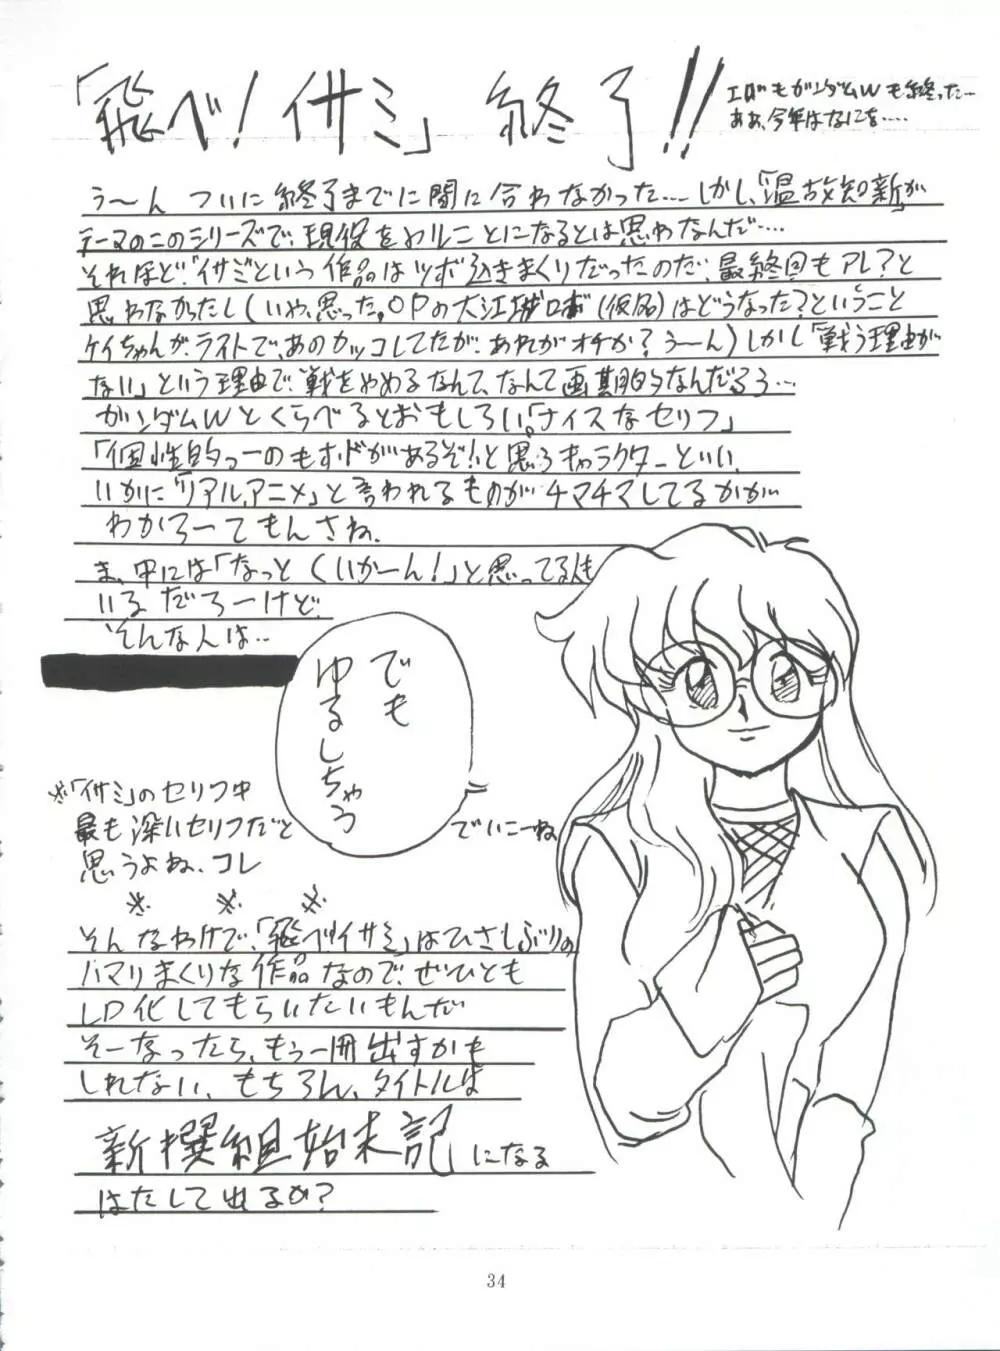 「飛べ!イサミ」終了!!
エヴァもガンダムWも終った…
ああ、今年はなにを……
う〜ん ついに終了までに間に合わなかった……しかし、「温故知新」が
テーマのこのシリーズで、現役をやることになるとは思わなんだ……
それほど「イサミ」という作品はツボつきまくりだったのだ、最終回もアレ?と
思わなかったし(いや、思った。OPの大江城ロボ(仮名)はどうなった?ということ
ケイちゃんがラストで、あのカッコしてたが、あれがオチか?う〜ん)しかし「戦う理由が
ない」という理由で、戦をやめるなんて、なんて画期的なんだろう…
ガンダムWとくらべるとおもしろい。「ナイスなセリフ」
「個性的っーのもすドがあるぞ!」と思うキャラクターといい、
いかに「リアルアニメ」と言われるものがチマチマしてるかが
わかろーてもんさね。
ま、中には「なっとくいかーん!」と思ってる人も
いるだろーけど、
そんな人は…
でも
ゆるしちゃう
でいこーね
※「イサミ」のセリフ中
最も深いセリフだと
思うよね、コレ
※ ※ ※
そんなわけで、「飛べ!イサミ」はひさしぶりの
ハマリまくりな作品なので、ぜひとも
LD化してもらいたいもんだ
そーなったら、もう一冊出すかも
しれない、もちろん、タイトルは
新撰組始末記になる
はたして出るか?
34